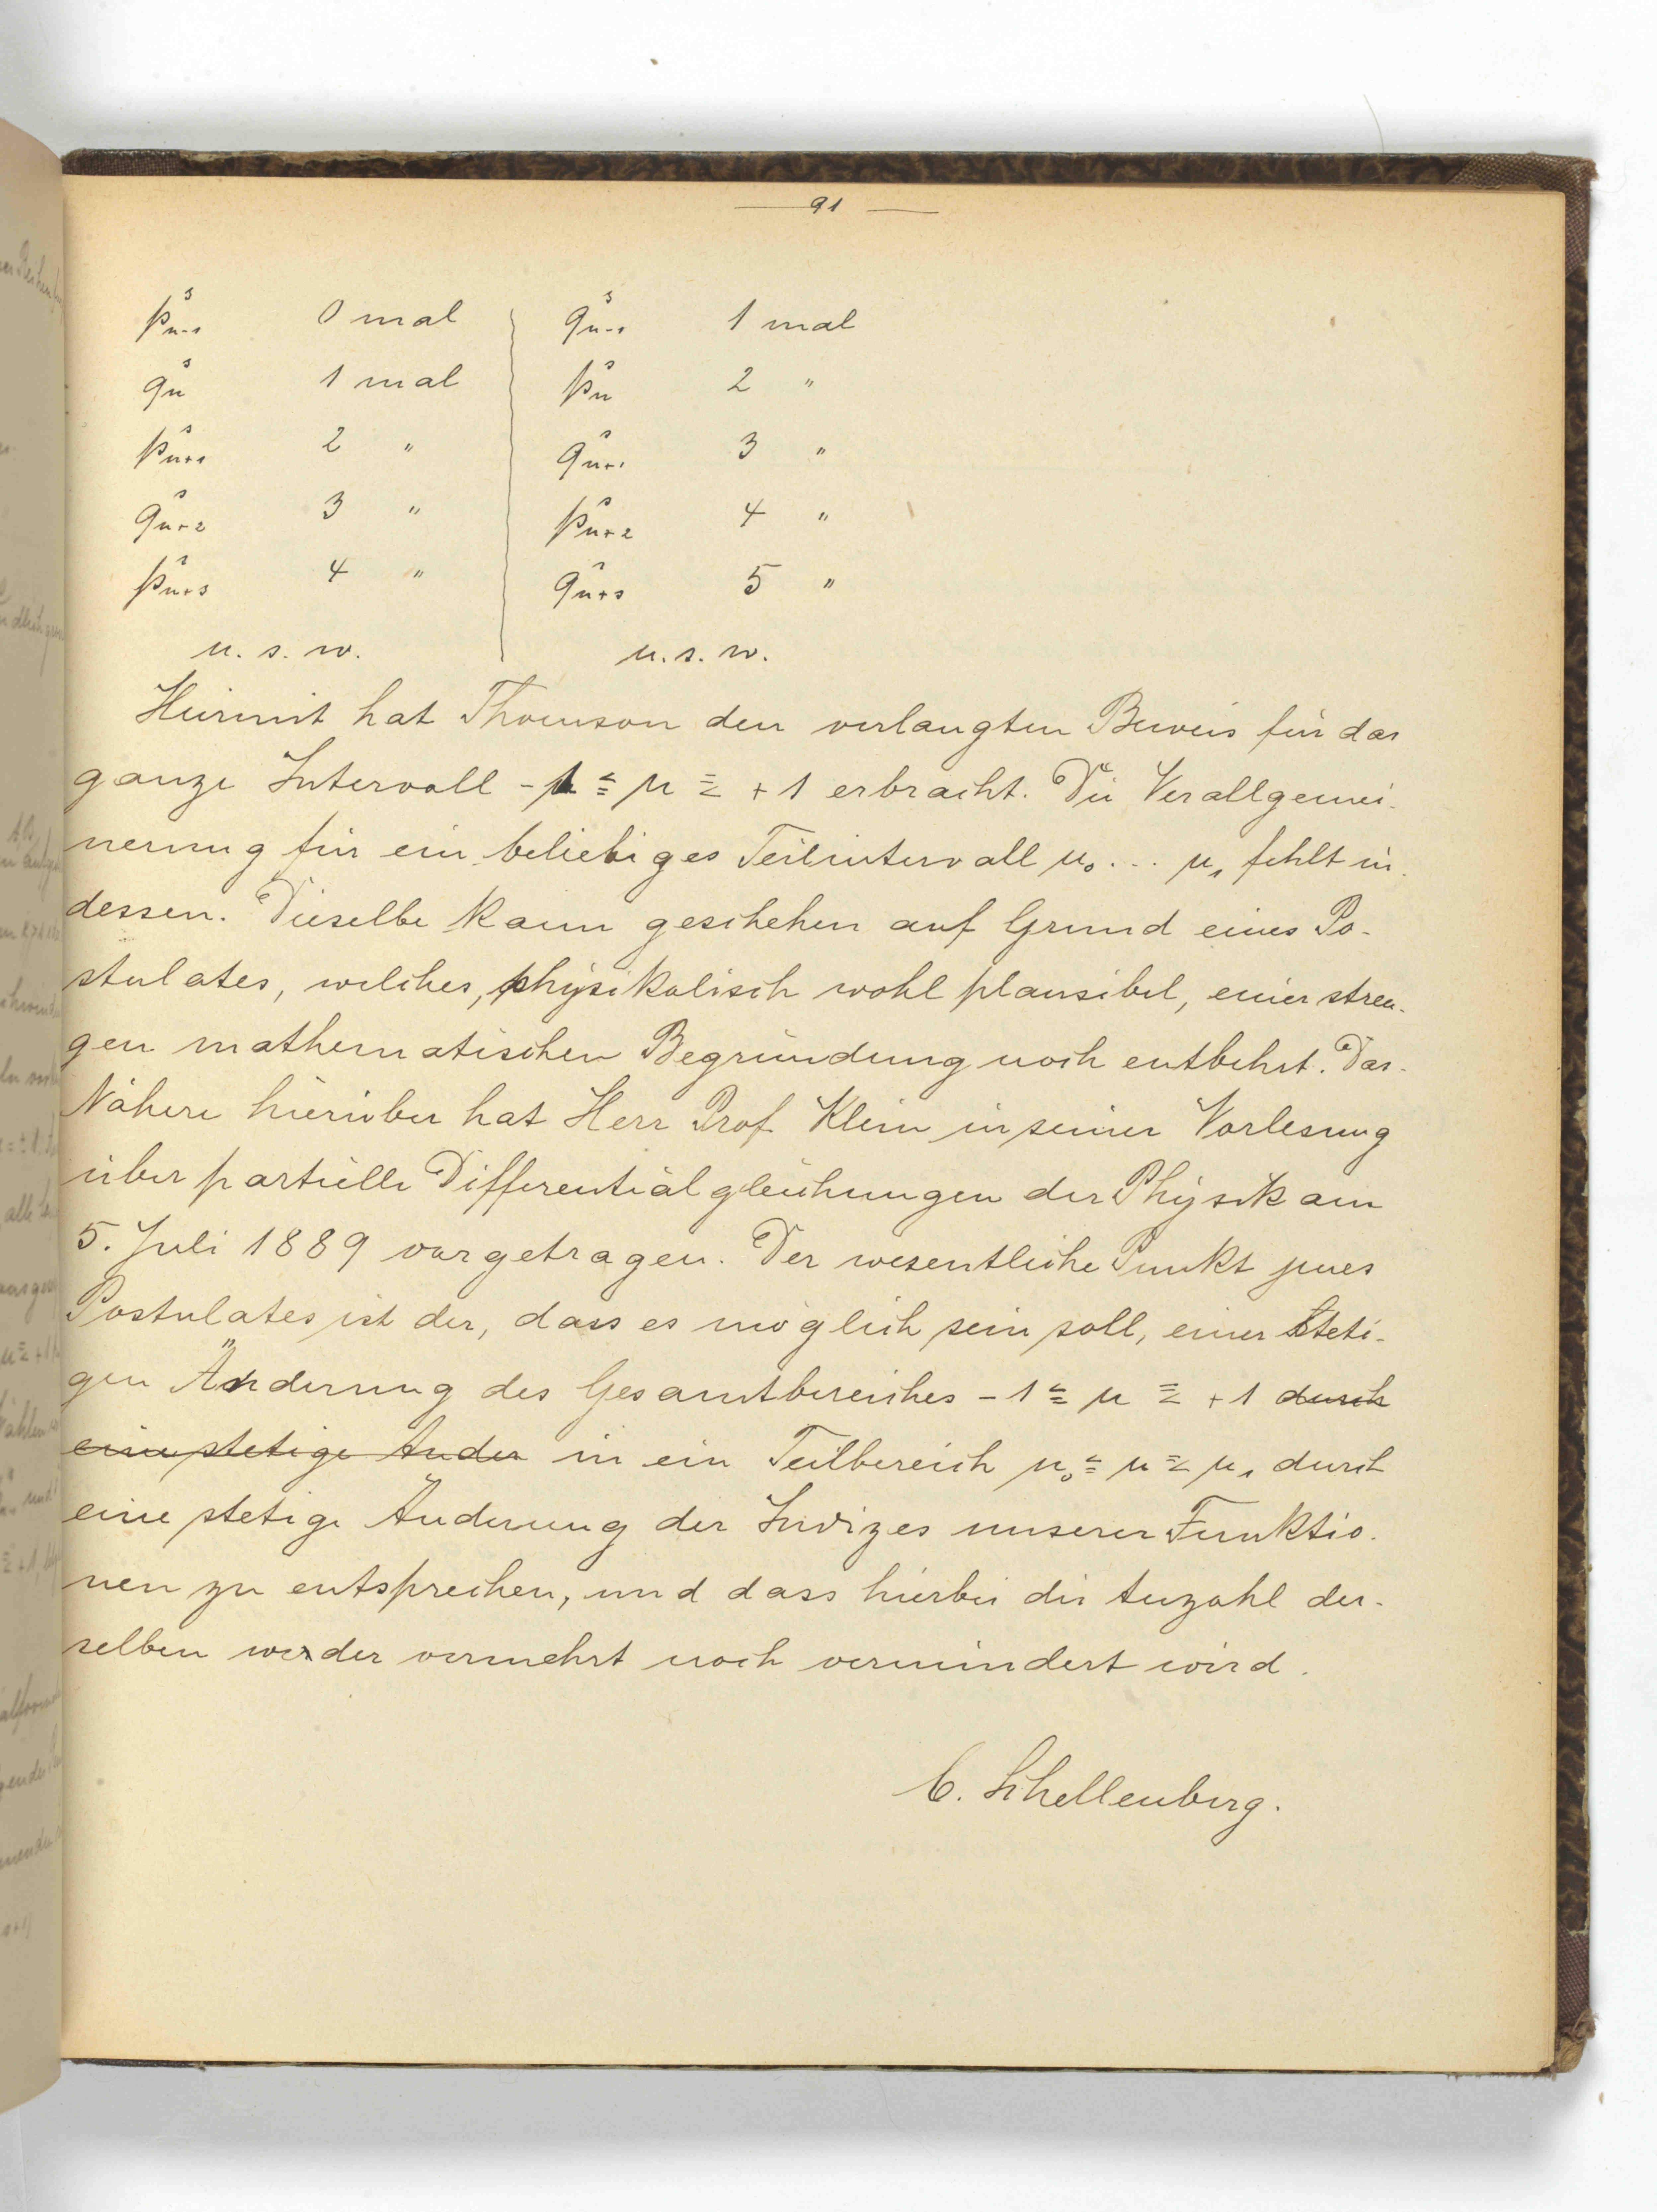 — 91 —
p^s_{n-1} 0 mal q^s_{n-1} 1 mal
q^s_n 1 mal p^s_n 2 "
p^s_{n+1} 2 " q^s_{n+1} 3 "
q^s_{n+2} 3 " p^s_{n+2} 4 "
p^s_{n+3} 4 " q^s_{n+3} 5 "
u. s. w. u. s. w.
Hiermit hat Thomson den verlangten Beweis für das
ganze Intervall -1 ≦ μ ≦ +1 erbracht. Die Verallgemei-
nerung für ein beliebiges Teilintervall μ₀ ... μ₁ fehlt in-
dessen. Dieselbe kann geschehen auf Grund eines Po-
stulates, welches, physikalisch wohl plausibel, einer stren-
gen mathematischen Begründung noch entbehrt. Das
Nähere hierüber hat Herr Prof. Klein in seiner Vorlesung
über partielle Differentialgleichungen der Physik am
5. Juli 1889 vorgetragen. Der wesentliche Punkt jenes
Postulates ist der, dass es möglich sein soll, einer steti-
gen Änderung des Gesamtbereiches -1 ≦ μ ≦ +1 durch
eine stetige Änder in ein Teilbereich μ₀ ≦ μ ≦ μ₁ durch
eine stetige Änderung der Indizes unserer Funktio-
nen zu entsprechen, und dass hierbei die Anzahl der-
selben weder vermehrt noch vermindert wird.
C. Schellenberg.